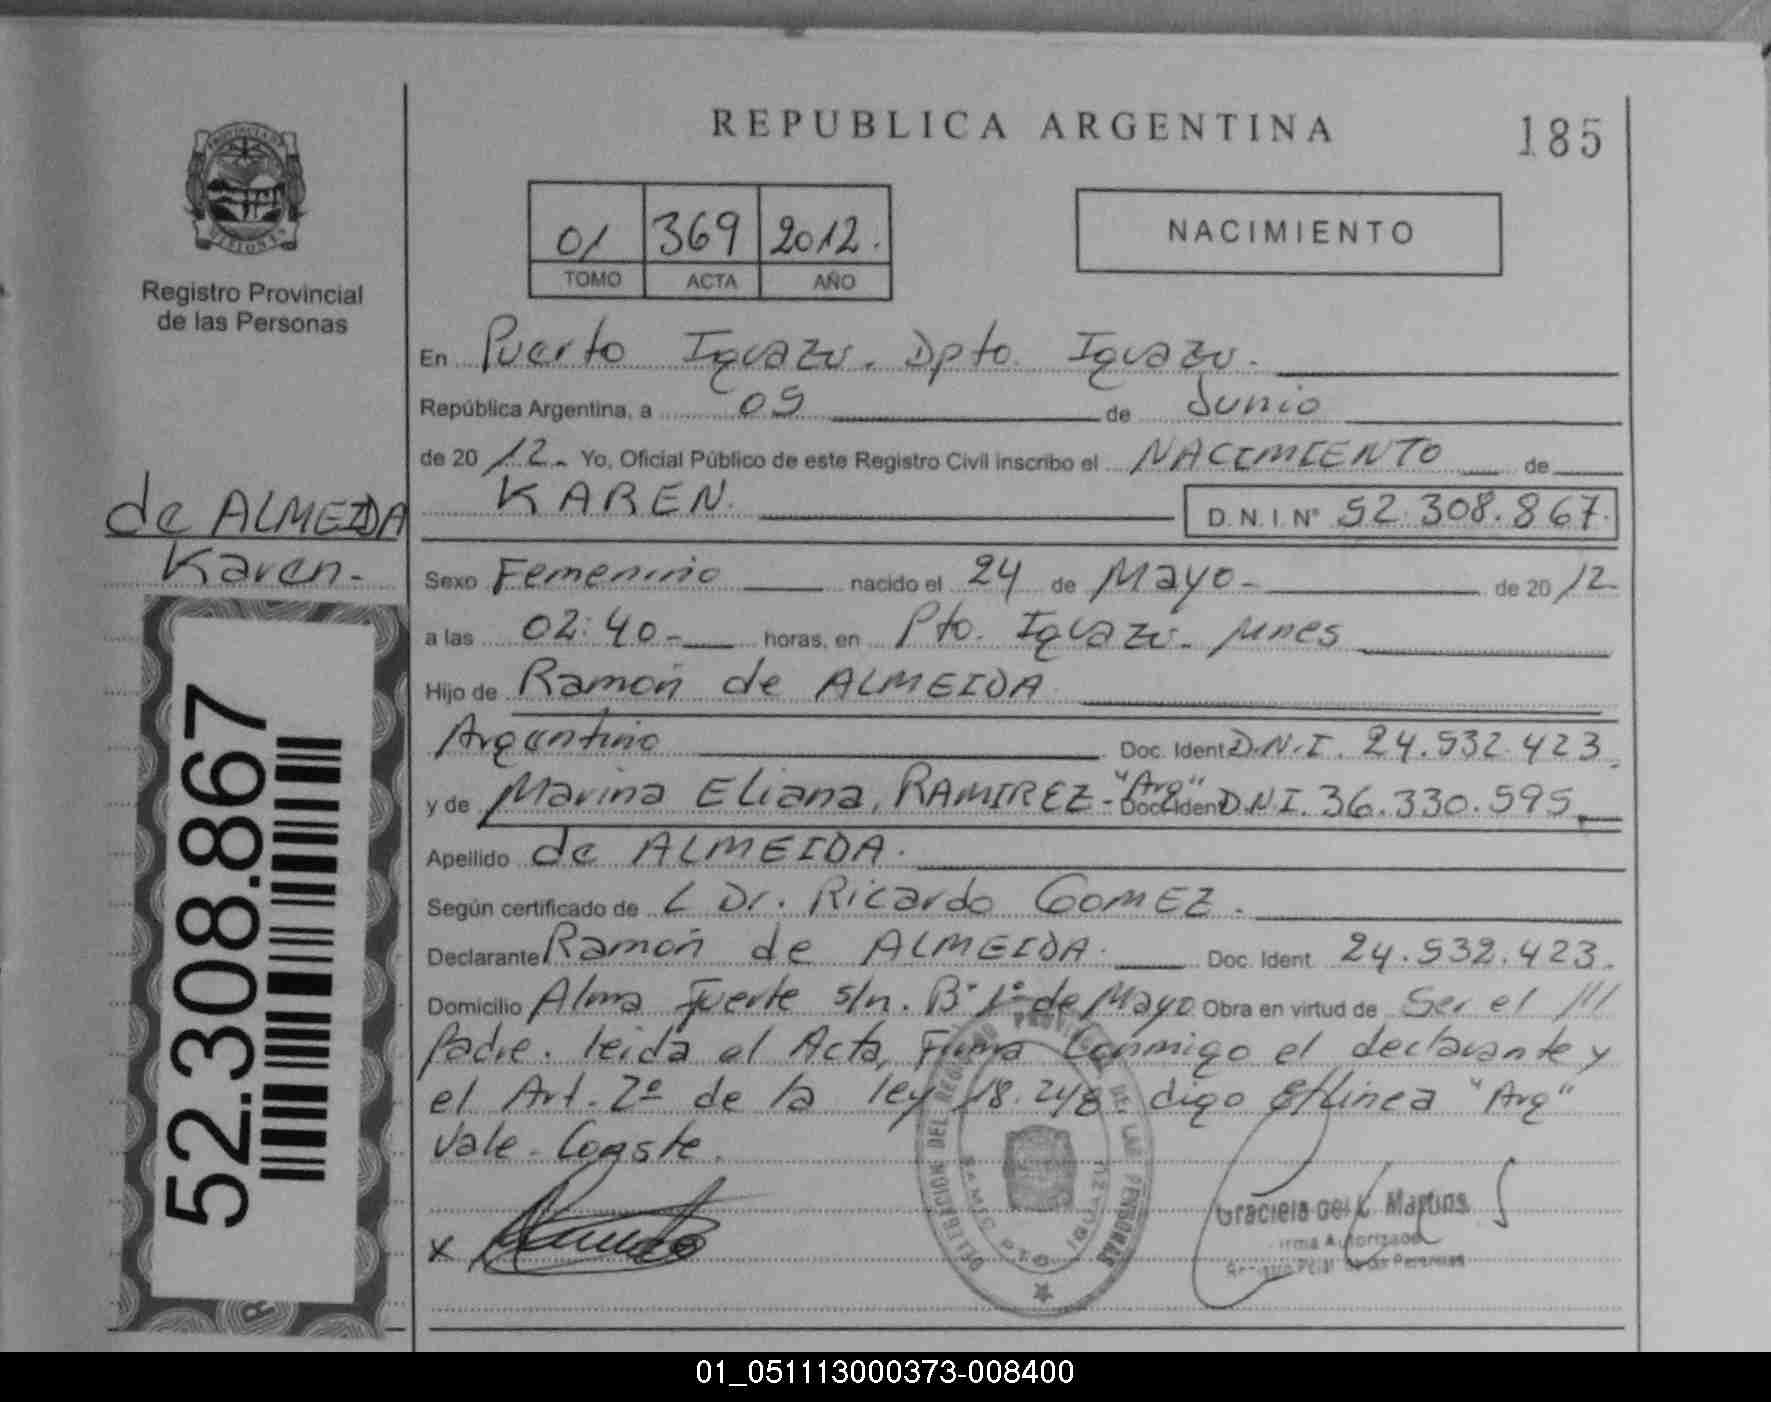 REPUBLICA ARGENTINA
185
PROVINCIA DE MISIONES
Registro Provincial
de las Personas
01 369 2012.
TOMO ACTA AÑO
NACIMIENTO
En Puerto Iguazu. Dpto. Iguazu.
República Argentina, a 09 de Junio
de 2012. Yo, Oficial Público de este Registro Civil inscribo el NACIMIENTO de
KAREN. D.N.I. Nº 52.308.867.
de ALMEIDA
Karen.
Sexo Femenino nacido el 24 de Mayo de 2012
a las 02:40 horas, en Pto. Iguazu. Mnes
Hijo de Ramón de ALMEIDA
Argentino Doc. Ident D.N.I. 24.532.423.
y de Marina Eliana, RAMIREZ- "Arg" Doc. Ident D.N.I. 36.330.595.
Apellido de ALMEIDA.
Según certificado de Dr. Ricardo GOMEZ.
Declarante Ramón de ALMEIDA. Doc. Ident. 24.532.423.
Domicilio Alma Fuerte s/n. Bº 1º de Mayo Obra en virtud de Ser el ///
padre. leida el Acta, Firma Conmigo el declarante y
el Art. 2º de la ley 18.248. digo E/linea "Arg"
Vale. Conste.
x
52.308.867
DELEGACION DEL REGISTRO PROVINCIAL DE LAS PERSONAS
PTO. IGUAZU
MISIONES
Graciela del Martins
Firma Autorizada
de las Personas
01_051113000373-008400